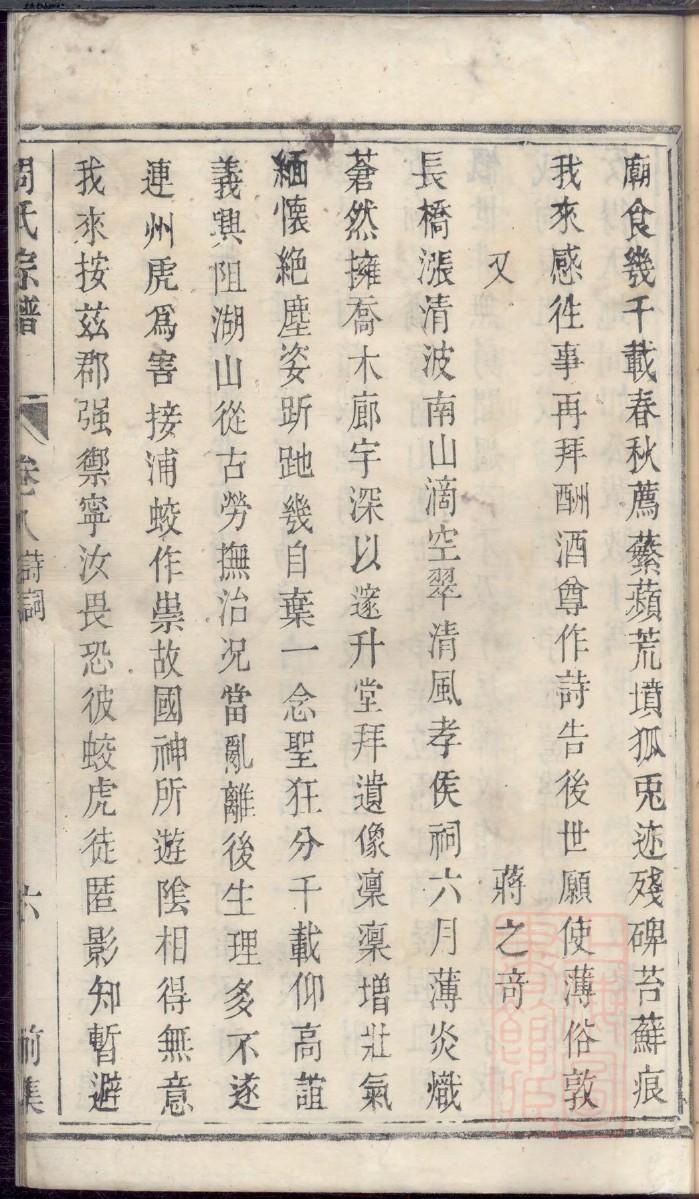 廟食幾千載春秋薦蘩蘋荒墳狐兎迹殘碑苔蘚痕
我來感往事再拜酬酒尊作詩告後世願使薄俗敦
又　蔣之奇
長橋漲清波南山滴空翠清風孝侯祠六月薄炎熾
蒼然擁喬木廊宇深以邃升堂拜遺像凜凜增壯氣
緬懷絶塵姿跅跎幾自棄一念聖狂分千載仰高誼
義興阻湖山從古勞撫治况當亂離後生理多不遂
連州虎爲害接浦蛟作祟故國神所遊陰相得無意
我來按兹郡强禦寧汝畏恐彼蛟虎徒匿影知暫避
周氏宗譜　卷八　詩詞　六　前集